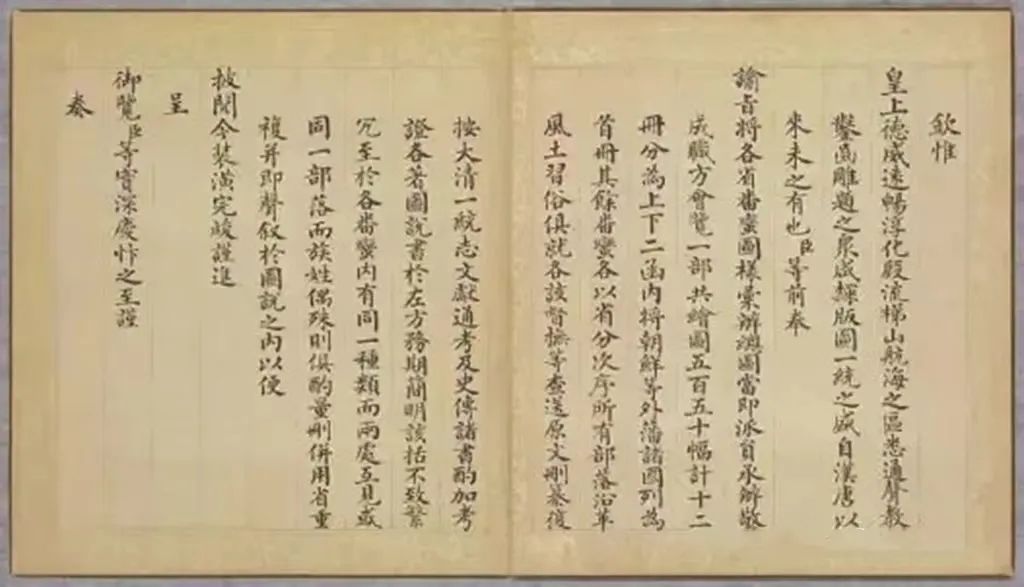 欽惟
皇上德威遠暢淳化殷流梯山航海之區悉通聲教
鑿齒雕題之衆咸隸版圖一統之盛自漢唐以
來未之有也臣等前奉
諭旨將各省番蠻圖樣彙辦潢圖當即派員承辦敬
成職方會覽一部共繪圖五百五十幅計十二
冊分為上下二函內將朝鮮等外藩諸國列為
首冊其餘番蠻各以省分次序所有部落沿革
風土習俗俱就各該督撫等查送原文刪纂復
按大清一統志文獻通考及史傳諸書酌加考
證各著圖說書於左方務期簡明該括不致繁
冗至於各番蠻內有同一種類而兩處互見或
同一部落而族姓偶殊則俱酌量刪併用省重
複并即聲敘於圖說之內以便
披閱今裝潢完竣謹進
呈
御覽臣等實深慶忭之至謹
奏